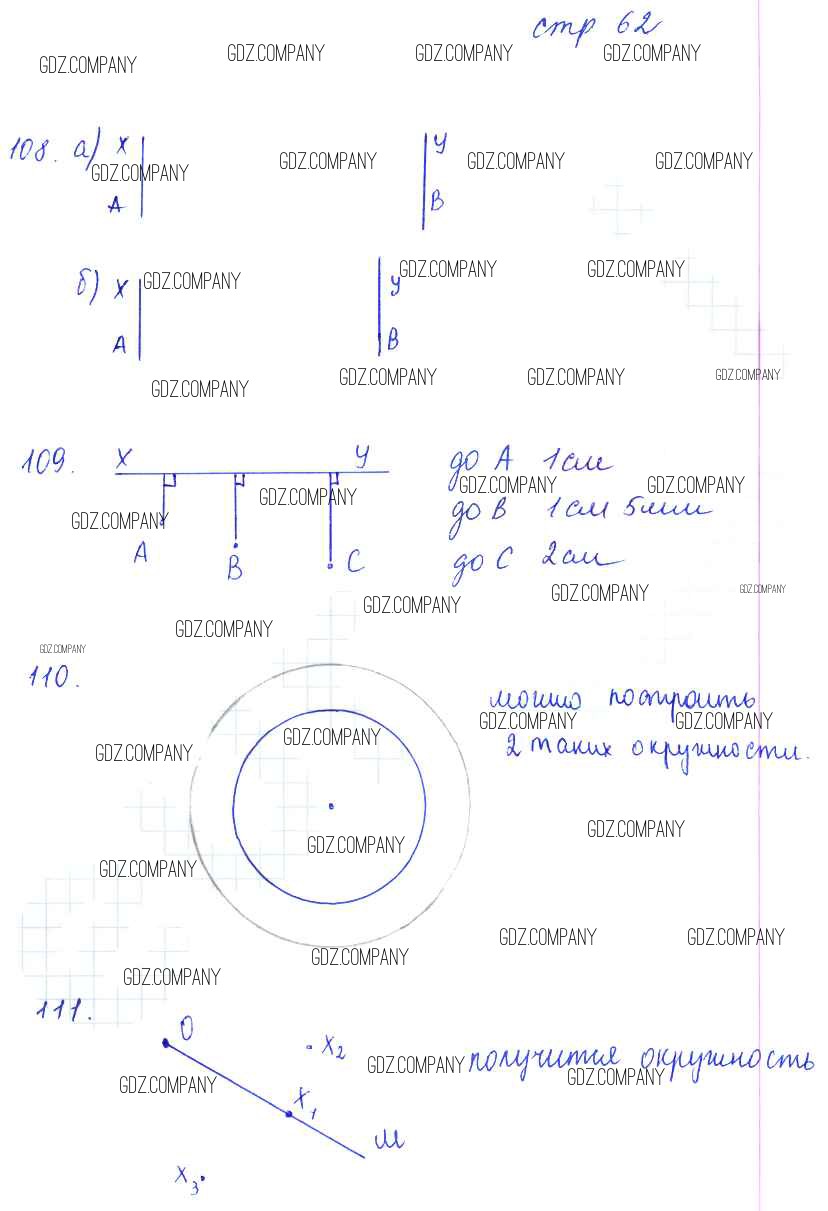 стр 62
GDZ.COMPANY GDZ.COMPANY GDZ.COMPANY GDZ.COMPANY
108. а) X У
GDZ.COMPANY GDZ.COMPANY GDZ.COMPANY GDZ.COMPANY
A B
GDZ.COMPANY GDZ.COMPANY GDZ.COMPANY
б) X У
A B
GDZ.COMPANY GDZ.COMPANY GDZ.COMPANY GDZ.COMPANY
109. X У до A 1см
GDZ.COMPANY GDZ.COMPANY GDZ.COMPANY GDZ.COMPANY
до B 1см 5мм
A B C до C 2см
GDZ.COMPANY GDZ.COMPANY GDZ.COMPANY GDZ.COMPANY
GDZ.COMPANY
110. можно построить
GDZ.COMPANY GDZ.COMPANY GDZ.COMPANY GDZ.COMPANY
2 таких окружности.
GDZ.COMPANY GDZ.COMPANY
GDZ.COMPANY
GDZ.COMPANY GDZ.COMPANY
GDZ.COMPANY GDZ.COMPANY
111. O
X2 получится окружность
GDZ.COMPANY GDZ.COMPANY GDZ.COMPANY
X1
M
X3